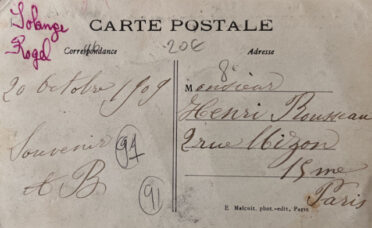 Solange
Rogel
CARTE POSTALE
Correspondance
20€
Adresse
8€
20 Octobre 1909
Souvenir
A B
94
91
Monsieur
Henri Rousseau
2 rue Mizon
15me
Paris
E Malcuit, phot.-edit., Paris